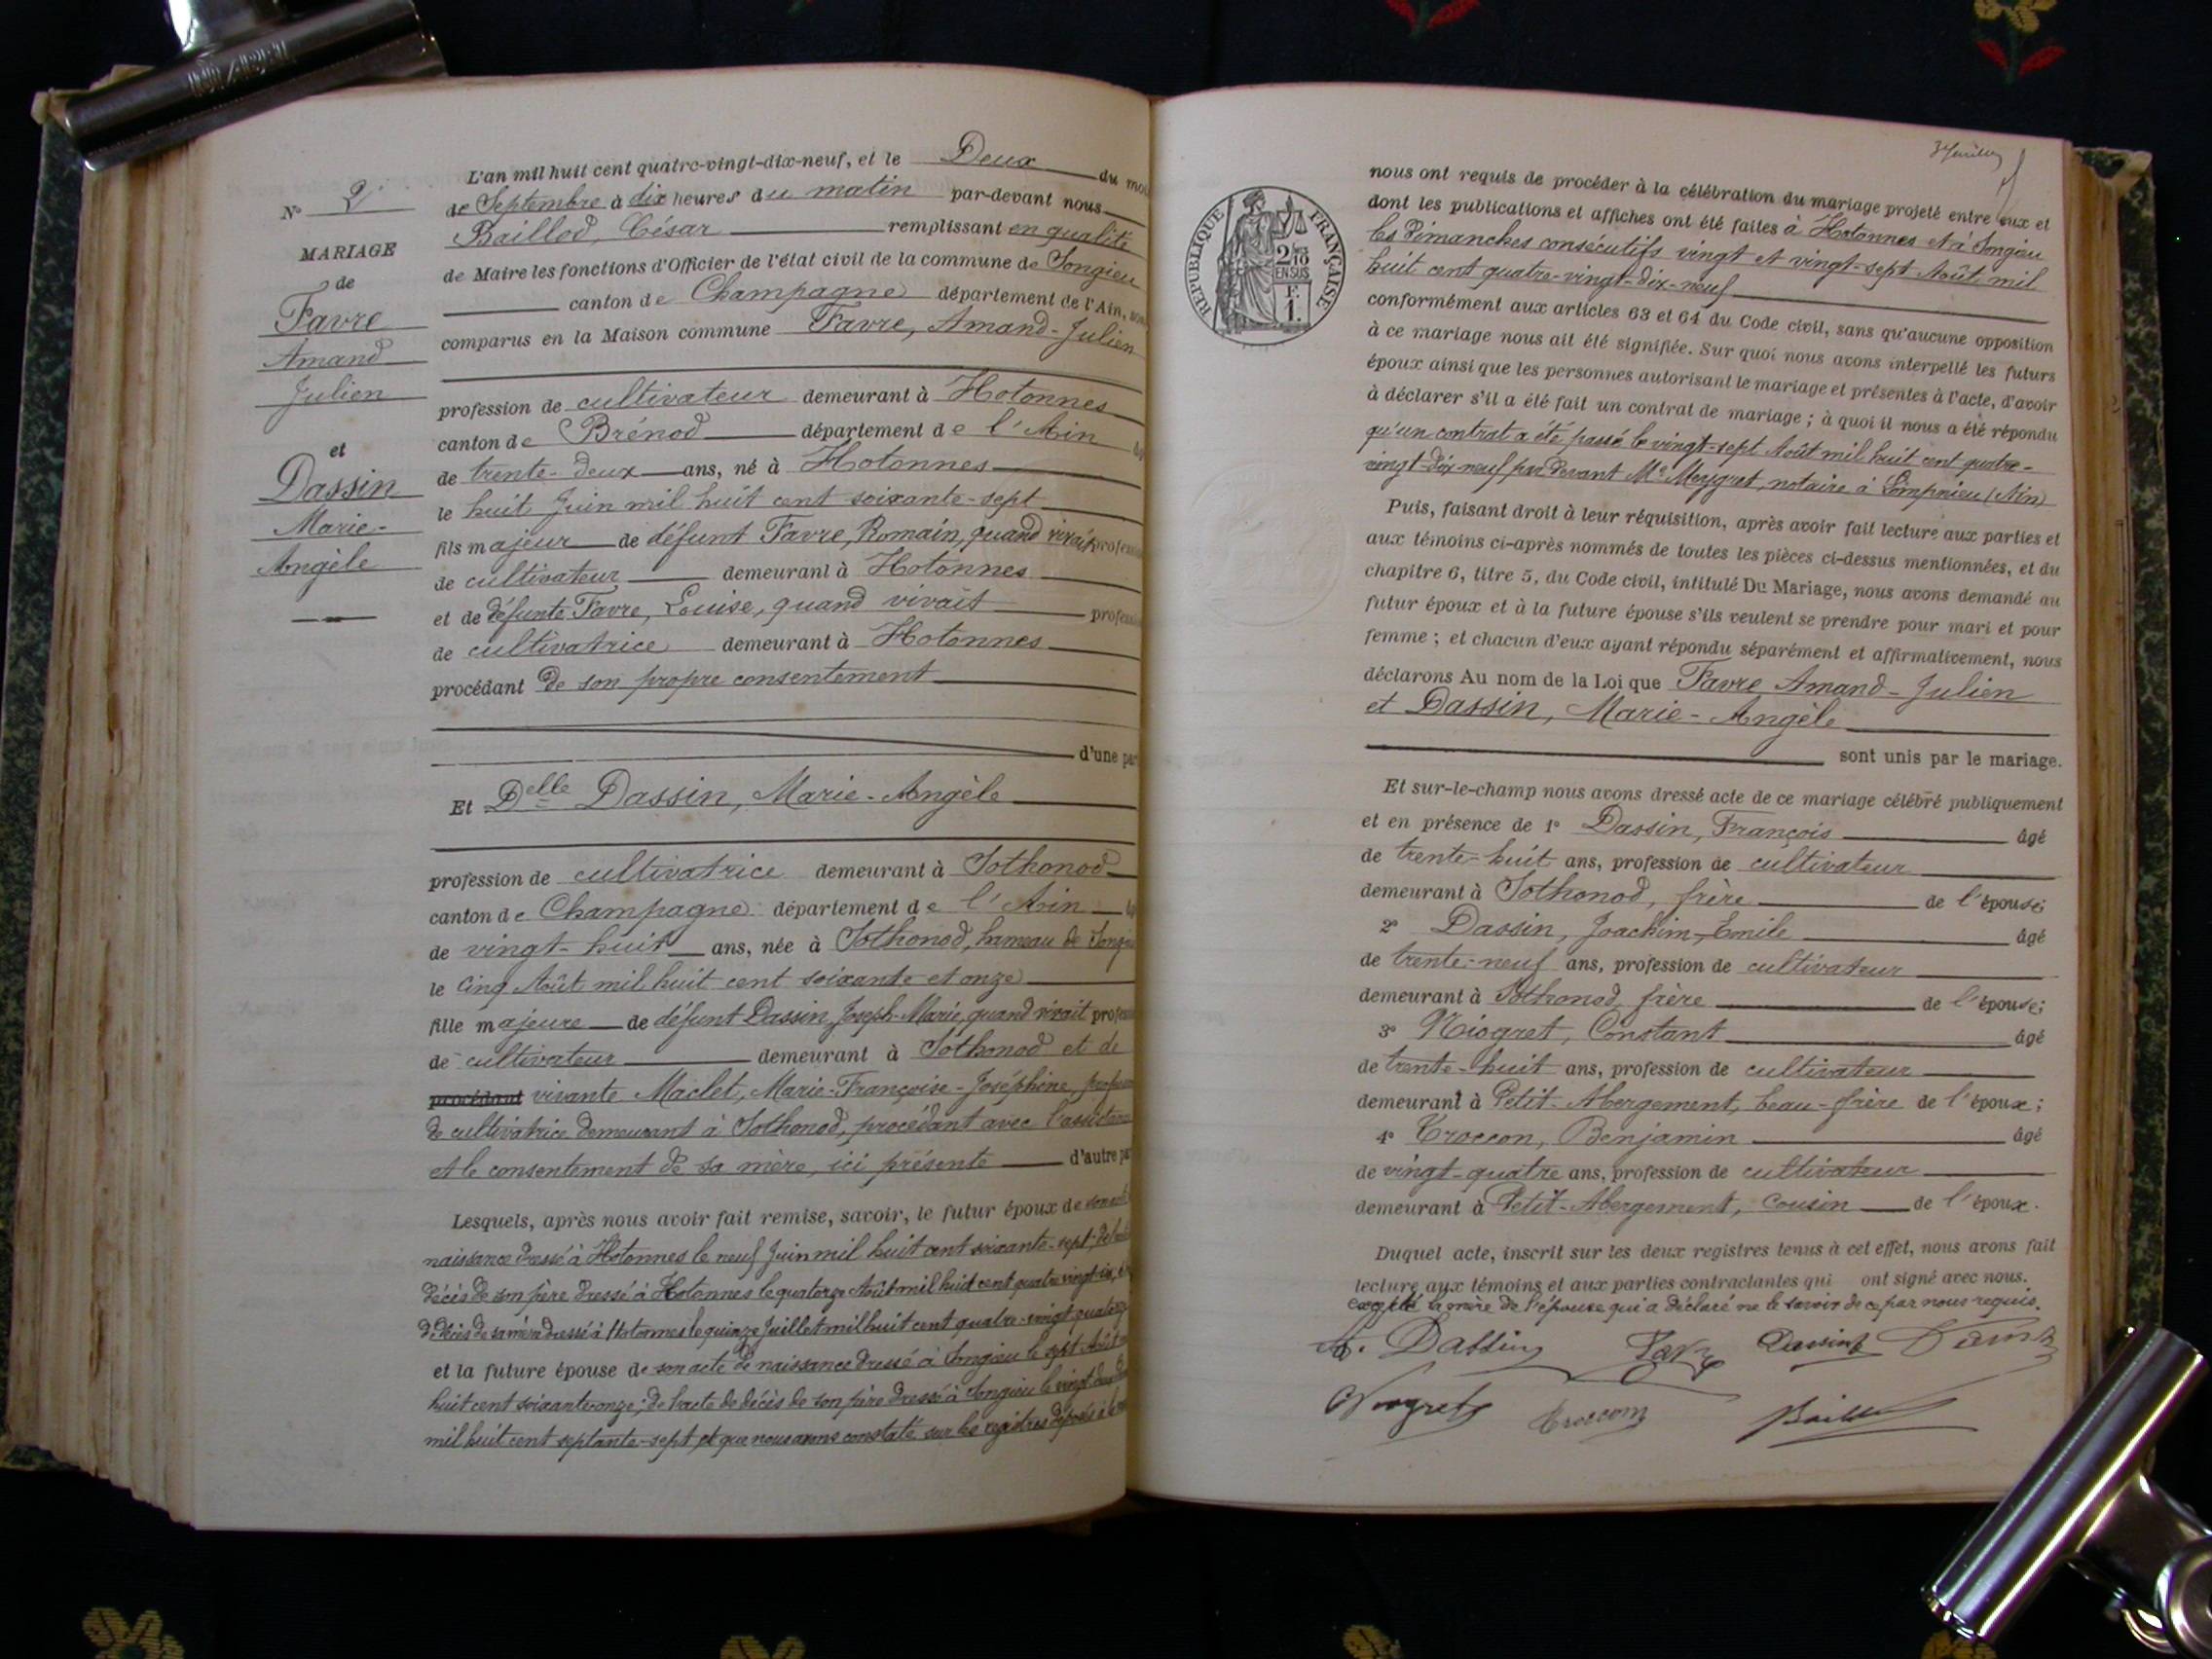 L'an mil huit cent quatre-vingt-dix-neuf, et le Deux du
N° 2 de Septembre à dix heures du matin par-devant nous
Baillod, César remplissant en qualité
MARIAGE de Maire les fonctions d'Officier de l'état civil de la commune de Songieu
de canton de Champagne département de l'Ain,
Favre comparus en la Maison commune Favre, Amand-Julien
Amand
Julien profession de cultivateur demeurant à Hotonnes
canton de Brénod département de l'Ain
et de trente-deux ans, né à Hotonnes
Dassin le huit Juin mil huit cent soixante-sept
Marie- fils majeur de défunt Favre, Romain, quand vivait
Angèle de cultivateur demeurant à Hotonnes
et de défunte Favre, Louise, quand vivait
de cultivatrice demeurant à Hotonnes
procédant de son propre consentement
d'une
Et Delle Dassin, Marie-Angèle
profession de cultivatrice demeurant à Sothonod
canton de Champagne département de l'Ain
de vingt-huit ans, née à Sothonod, hameau de
le cinq Août mil huit cent soixante et onze
fille majeure de défunt Dassin, Joseph-Marie, quand vivait
de cultivateur demeurant à Sothonod et de
procédant vivante Maclet, Marie-Françoise-Joséphine,
de cultivatrice demeurant à Sothonod, procédant avec
et le consentement de sa mère, ici présente d'autre
Lesquels, après nous avoir fait remise, savoir, le futur époux de son
naissance dressé à Hotonnes le neuf Juin mil huit cent soixante-sept;
décès de son père dressé à Hotonnes le quatorze Août mil huit cent
décès de sa mère dressé à Hotonnes le quinze Juillet mil huit cent quatre-vingt-quatorze
et la future épouse de son acte de naissance dressé à Songieu le sept Août
huit cent soixante onze; de l'acte de décès de son père dressé à Songieu le vingt
mil huit cent septante-sept et que nous avons constaté sur les registres déposés
nous ont requis de procéder à la célébration du mariage projeté entre eux et
dont les publications et affiches ont été faites à Hotonnes et à Songieu
les Dimanches consécutifs vingt et vingt-sept Août mil
huit cent quatre-vingt-dix-neuf
RÉPUBLIQUE FRANÇAISE
2/10
EN SUS
F.
1.
conformément aux articles 63 et 64 du Code civil, sans qu'aucune opposition
à ce mariage nous ait été signifiée. Sur quoi nous avons interpellé les futurs
époux ainsi que les personnes autorisant le mariage et présentes à l'acte, d'avoir
à déclarer s'il a été fait un contrat de mariage; à quoi il nous a été répondu
qu'un contrat a été passé le vingt-sept Août mil huit cent quatre-
vingt-dix-neuf par devant Me notaire à (Ain)
Puis, faisant droit à leur réquisition, après avoir fait lecture aux parties et
aux témoins ci-après nommés de toutes les pièces ci-dessus mentionnées, et du
chapitre 6, titre 5, du Code civil, intitulé Du Mariage, nous avons demandé au
futur époux et à la future épouse s'ils veulent se prendre pour mari et pour
femme; et chacun d'eux ayant répondu séparément et affirmativement, nous
déclarons Au nom de la Loi que Favre Amand-Julien
et Dassin, Marie-Angèle
sont unis par le mariage.
Et sur-le-champ nous avons dressé acte de ce mariage célébré publiquement
et en présence de 1° Dassin, François âgé
de trente-huit ans, profession de cultivateur
demeurant à Sothonod, frère de l'épouse;
2° Dassin, Joachim-Emile âgé
de trente-neuf ans, profession de cultivateur
demeurant à Sothonod, frère de l'épouse;
3° Niogret, Constant âgé
de trente-huit ans, profession de cultivateur
demeurant à Petit-Abergement, beau-frère de l'époux;
4° Troccon, Benjamin âgé
de vingt-quatre ans, profession de cultivateur
demeurant à Petit-Abergement, cousin de l'époux.
Duquel acte, inscrit sur les deux registres tenus à cet effet, nous avons fait
lecture aux témoins et aux parties contractantes qui ont signé avec nous.
excepté la mère de l'épouse qui a déclaré ne le savoir de ce par nous requis.
Dassin Dassin
Niogret Troccon